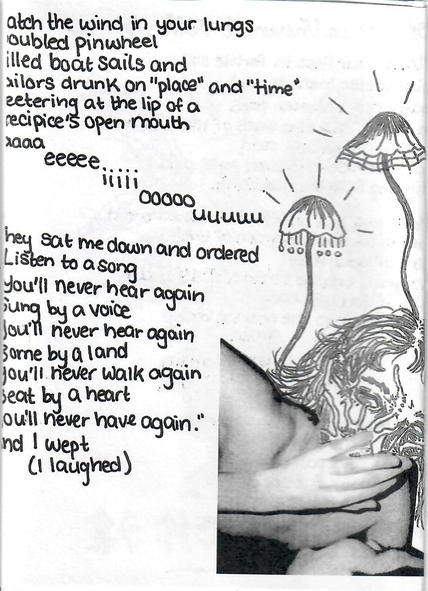 atch the wind in your lungs
oubled pinwheel
illed boat sails and
ailors drunk on "place" and "time"
eetering at the lip of a
recipice's open mouth
aaaa
eeeee
iiiii
ooooo
uuuuu
hey sat me down and ordered
Listen to a song
you'll never hear again
Sung by a voice
you'll never hear again
Borne by a land
you'll never walk again
Beat by a heart
ou'll never have again."
nd I wept
(I laughed)